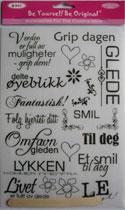 Be Yourself Be Original
Verden
er full av
muligheter
grip dem!
Grip dagen
GLEDE
delte
øyeblikk
Fantastisk!
SMIL
Følg hjertet ditt
Til deg
Omfavn
gleden
Et smil
til deg
LYKKEN
Livet
er fullt av glede
LE